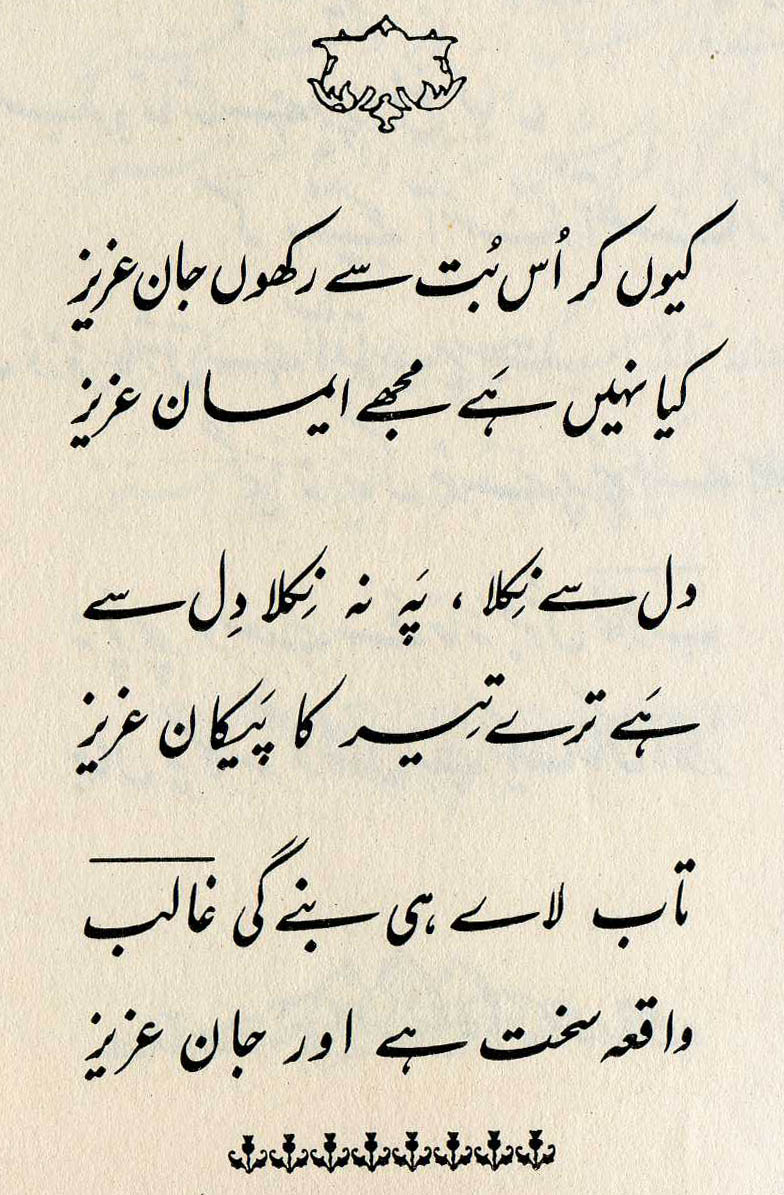 کیوں کر اُس بُت سے رکھوں جان عزیز
کیا نہیں ہَے مجھے ایمان عزیز
دل سے نِکلا ، پَہ نہ نِکلا دِل سے
ہَے ترے تِیر کا پَیکان عزیز
تاب لاے ہی بنے گی غالب
واقعہ سخت ہے اور جان عزیز